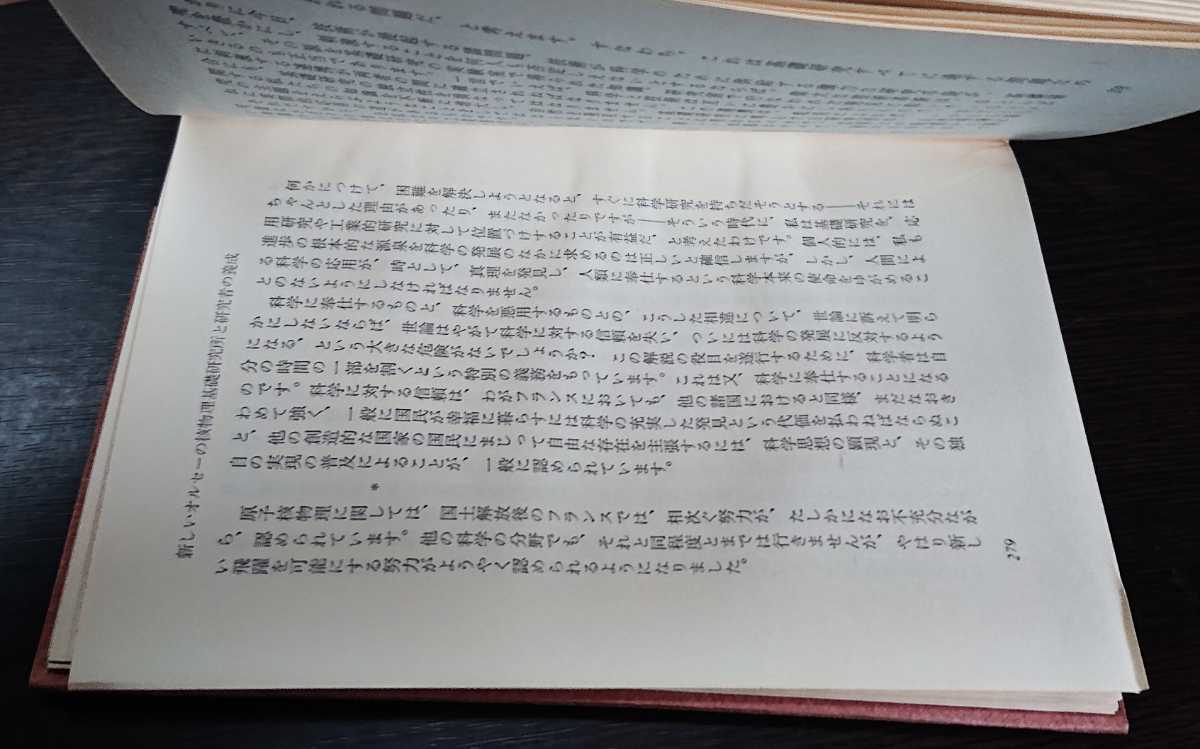 新しいオルセーの核物理基礎研究所と研究者の養成
何かにつけて、困難を解決しようとなると、すぐに科学研究を持ちだそうとする――それには
ちゃんとした理由があったり、またなかったりですが――そういう時代に、私は基礎研究を、応
用研究や工業的研究に対して位置づけすることが有益だ、と考えたわけです。個人的には、私も
進歩の根本的な源泉を科学の発展のなかに求めるのは正しいと確信しますが、しかし、人間によ
る科学の応用が、時として、真理を発見し、人類に奉仕するという科学本来の使命をゆがめるこ
とのないようにしなければなりません。
科学に奉仕するものと、科学を悪用するものとの、こうした相違について、世論に訴えて明ら
かにしないならば、世論はやがて科学に対する信頼を失い、ついには科学の発展に反対するよう
になる、という大きな危険がないでしょうか? この解説の役目を遂行するために、科学者は自
分の時間の一部を割くという特別の義務をもっています。これは又、科学に奉仕することになる
のです。科学に対する信頼は、わがフランスにおいても、他の諸国におけると同様、まだなおき
わめて強く、一般に国民が幸福に暮らすには科学の充実した発見という代価を払わねばならぬこ
と、他の創造的な国家の国民にまじって自由な存在を主張するには、科学思想の顕現と、その独
自の実現の普及によることが、一般に認められています。
*
原子核物理に関しては、国土解放後のフランスでは、相次ぐ努力が、たしかになお不充分なが
ら、認められています。他の科学の分野でも、それと同程度とまでは行きませんが、やはり新し
い飛躍を可能にする努力がようやく認められるようになりました。
279
と考えます。すなわち、これは基礎研究すべてに通ずる